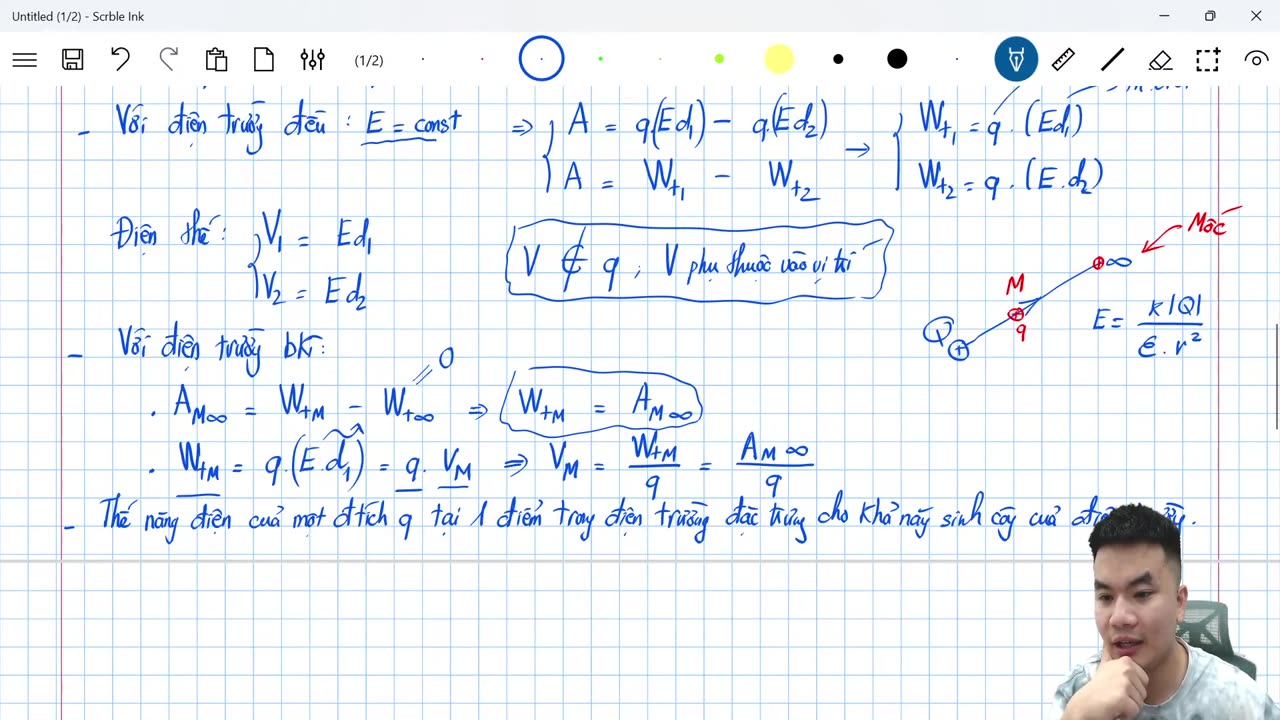 Untitled (1/2) - Scrble Ink
(1/2)
- Với điện trường đều : E = const ⇒ { A = q.(Ed₁) - q.(Ed₂) → { Wt₁ = q . (Ed₁)
A = Wt₁ - Wt₂ Wt₂ = q . (E.d₂)
Điện thế: { V₁ = Ed₁
V₂ = Ed₂
V ∉ q , V phụ thuộc vào vị trí
Mốc
∞
M
q
Q
E = k|Q| / ε.r²
- Với điện trường bkì:
. A M∞ = WtM - Wt∞ = 0 ⇒ WtM = A M∞
. WtM = q.(E.d₁) = q. V_M ⇒ V_M = WtM / q = A M∞ / q
- Thế năng điện của một đtích q tại 1 điểm trong điện trường đặc trưng cho khả năng sinh công của